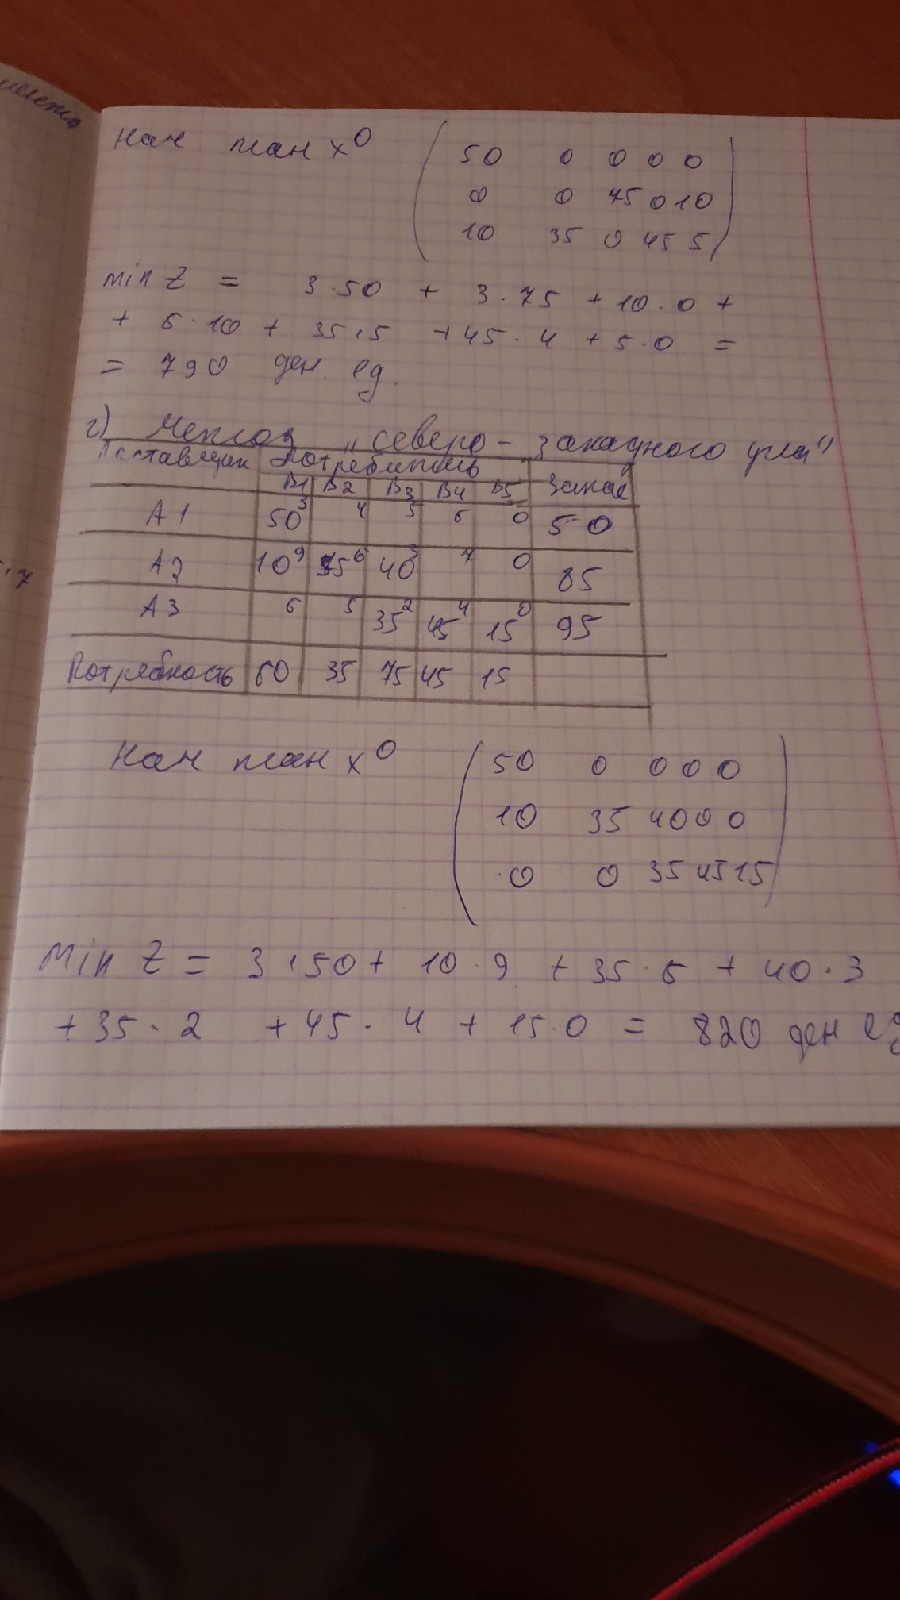 Нач план x⁰ ( 50 0 0 0 0
0 0 75 0 10
10 35 0 45 5 )
min Z = 3·50 + 3·75 + 10·0 +
+ 6·10 + 35·5 + 45·4 + 5·0 =
= 790 ден. ед.
г) Метод „северо-западного угла"
Поставщик Потребитель Запас
B1 B2 B3 B4 B5
A1 50 3 4 5 6 0 50
A2 10 9 35 6 40 3 7 0 85
A3 6 5 35 2 45 4 15 0 95
Потребность 60 35 75 45 15
Нач план x⁰ ( 50 0 0 0 0
10 35 40 0 0
0 0 35 45 15 )
Min Z = 3·50 + 10·9 + 35·6 + 40·3
+ 35·2 + 45·4 + 15·0 = 820 ден ед